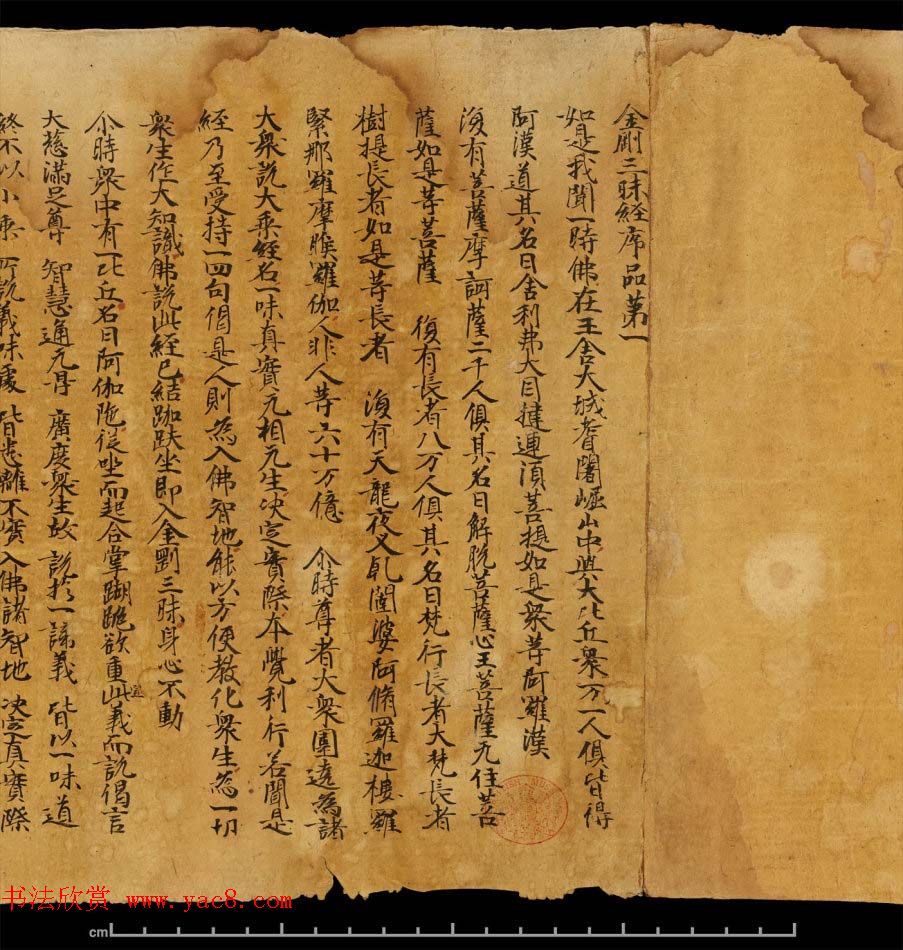 金剛三昧経序品苐一
如是我聞一時佛在王舎大城耆闍崛山中與大比丘衆万一人俱皆得
阿漢道其名曰舍利弗大目揵連湏菩提如是衆䓁阿羅漢
復有菩薩摩訶薩二千人俱其名曰解脱菩薩心王菩薩无住菩
薩如是䓁菩薩 復有長者八万人俱其名曰梵行長者大梵長者
樹提長者如是䓁長者 復有天龍夜叉乹闥婆阿脩羅迦樓羅
緊那羅摩睺羅伽人非人䓁六十万億 尒時尊者大衆圍遶為諸
大衆說大乗經名一味真實无相无生決定實際本覺利行若聞是
經乃至受持一四句偈是人則為入佛智地能以方便教化衆生為一切
衆生作大知識佛說此經已結跏趺坐即入金剛三昧身心不動
尒時衆中有一比丘名曰阿伽陁従坐而起合掌𨄔跪欲重宣此義而說偈言
大慈滿足尊 智慧通无㝵 廣度衆生故 說於一諦義 皆以一味道
終不以小乗 所說義味處 皆悉離不實 入佛諸智地 決定真實際
书法欣赏 www.yac8.com
cm